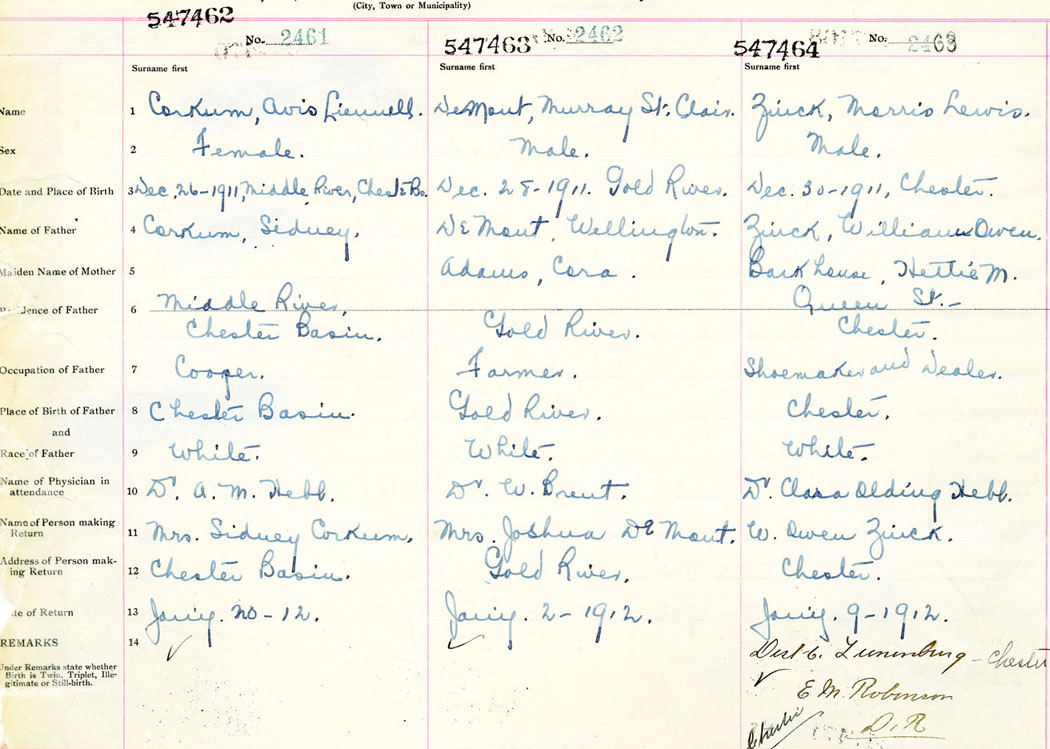 (City, Town or Municipality)
547462 No. 2461
547463 No. 2462
547464 No. 2463
Surname first Surname first Surname first
Name 1 Corkum, Avis Liennell. DeMont, Murray St. Clair. Zinck, Morris Lewis.
Sex 2 Female. Male. Male.
Date and Place of Birth 3 Dec. 26-1911, Middle River, Chester Ba. Dec. 28-1911. Gold River. Dec. 30-1911, Chester.
Name of Father 4 Corkum, Sidney. DeMont, Wellington. Zinck, William Owen.
Maiden Name of Mother 5 Adams, Cora. Barkhouse, Hettie M.
Middle River, Queen St.-
dence of Father 6 Chester Basin. Gold River. Chester.
Occupation of Father 7 Cooper. Farmer. Shoemaker and Dealer.
Place of Birth of Father 8 Chester Basin. Gold River. Chester.
and
Race of Father 9 White. White. White.
Name of Physician in
attendance 10 Dr. A. M. Hebb. Dr. W. Brent. Dr. Clara Olding Hebb.
Name of Person making
Return 11 Mrs. Sidney Corkum. Mrs. Joshua DeMont. W. Owen Zinck.
Address of Person mak-
ing Return 12 Chester Basin. Gold River. Chester.
te of Return 13 Jan'y. 20-12. Jan'y. 2-1912. Jan'y. 9-1912.
REMARKS 14
Under Remarks state whether
Birth is Twin, Triplet, Ille-
gitimate or Still-birth.
Dist 6. Lunenburg - Chester
E M. Robinson
D. R